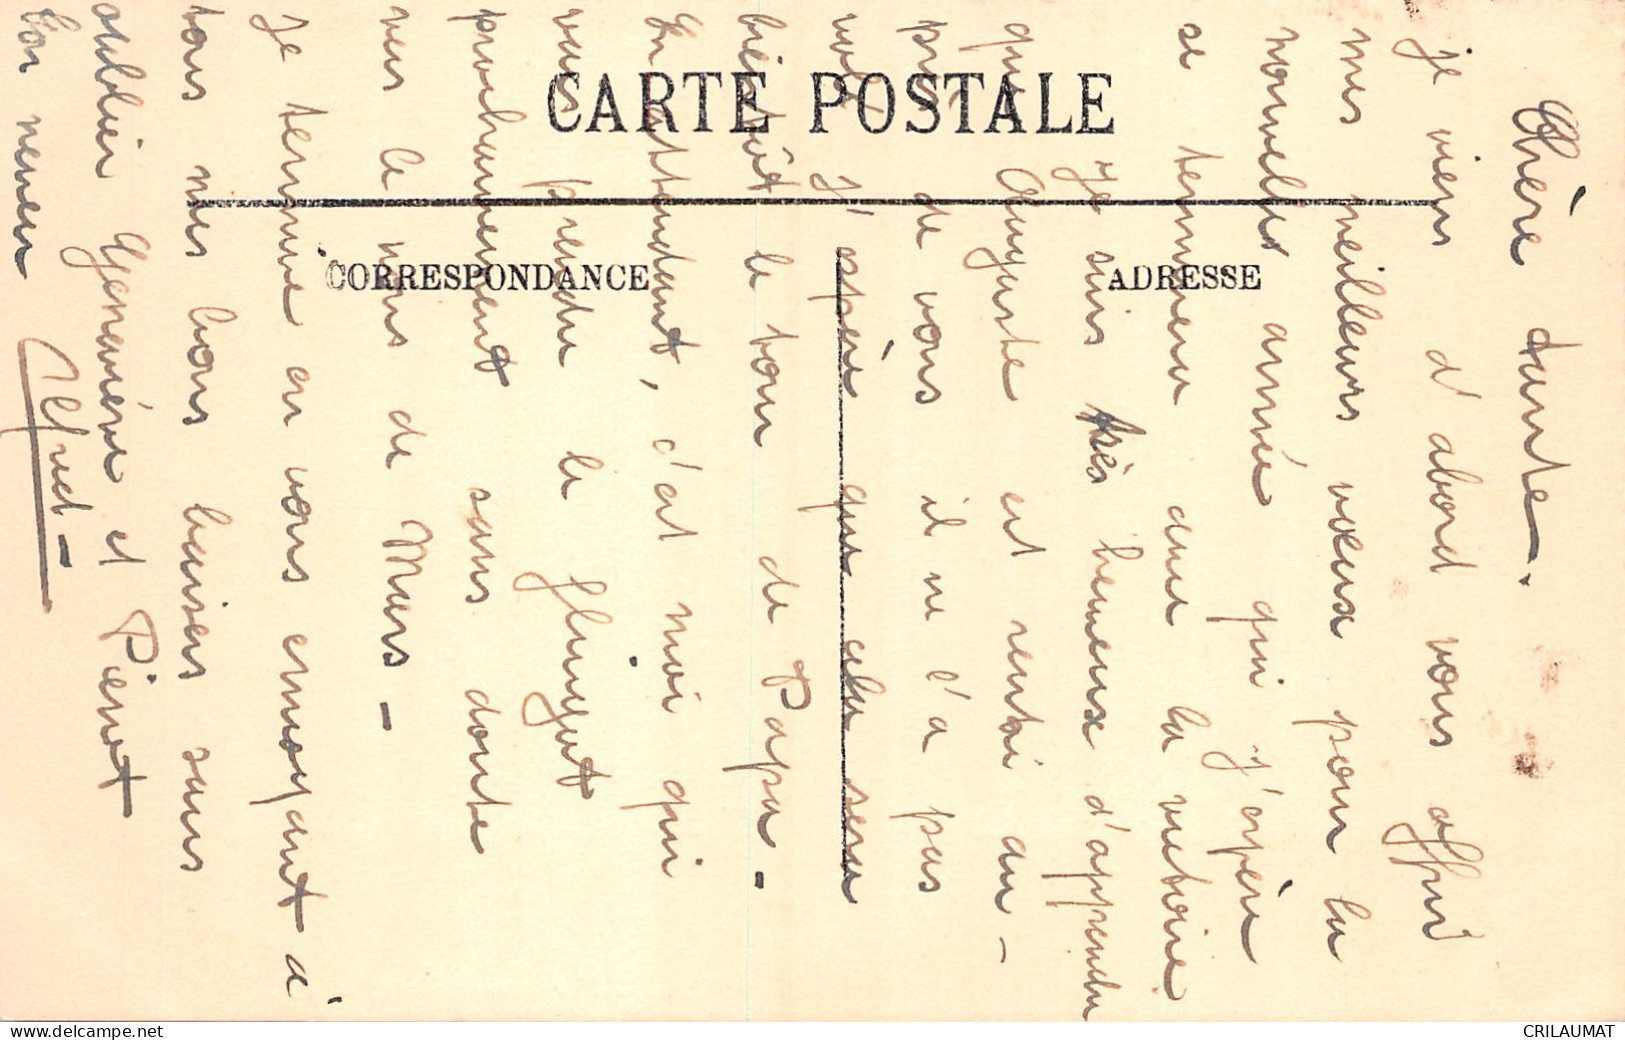 CARTE POSTALE
CORRESPONDANCE
ADRESSE
Chère tante.
je viens d'abord vous offrir
mes meilleurs voeux pour la
nouvelle année qui j'espère
se terminera avec la victoire
Je suis très heureux d'apprendre
que Auguste est rentré au-
près de vous il ne l'a pas
volé J'espère que cela sera
bientôt le tour de Papa -
En attendant, c'est moi qui
vais prendre le flingot
prochainement sans doute
vers le mois de Mars -
Je termine en vous envoyant à
tous mes bons baisers sans
oublier Geneviève et Pierrot
Ton neveu Alfred -
delcampe.net
CRILAUMAT